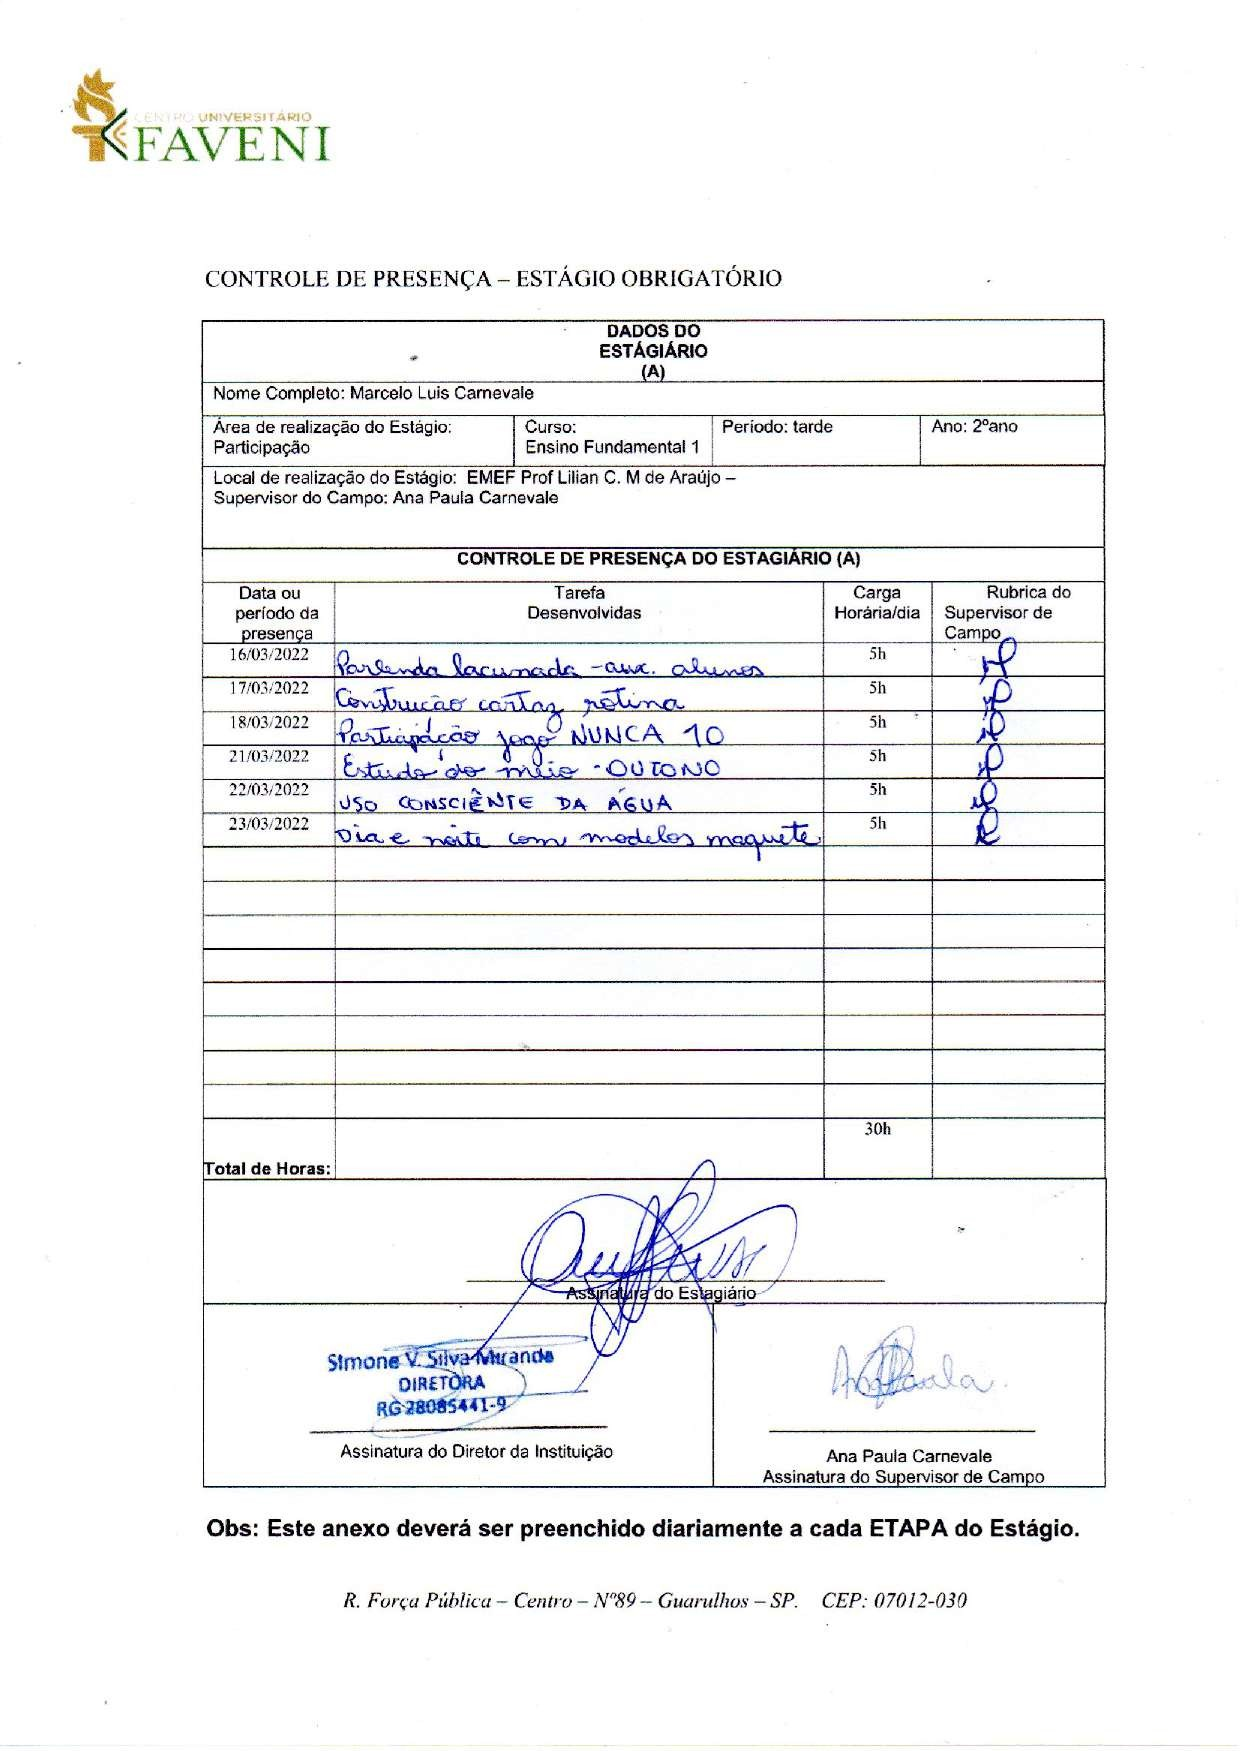 CENTRO UNIVERSITÁRIO
FAVENI
CONTROLE DE PRESENÇA – ESTÁGIO OBRIGATÓRIO
DADOS DO
ESTÁGIÁRIO
(A)
Nome Completo: Marcelo Luis Carnevale
Área de realização do Estágio:
Participação
Curso:
Ensino Fundamental 1
Período: tarde
Ano: 2ºano
Local de realização do Estágio: EMEF Prof Lilian C. M de Araújo –
Supervisor do Campo: Ana Paula Carnevale
CONTROLE DE PRESENÇA DO ESTAGIÁRIO (A)
Data ou
período da
presença
Tarefa
Desenvolvidas
Carga
Horária/dia
Rubrica do
Supervisor de
Campo
16/03/2022 Parlenda lacunada - aux. alunos 5h
17/03/2022 Construção cartaz rotina 5h
18/03/2022 Participação jogo NUNCA 10 5h
21/03/2022 Estudo do meio - OUTONO 5h
22/03/2022 USO CONSCIÊNTE DA ÁGUA 5h
23/03/2022 Dia e noite com modelos maquete 5h
30h
Total de Horas:
Assinatura do Estagiário
Simone V. Silva Miranda
DIRETORA
RG 28085441-9
Assinatura do Diretor da Instituição
Ana Paula
Ana Paula Carnevale
Assinatura do Supervisor de Campo
Obs: Este anexo deverá ser preenchido diariamente a cada ETAPA do Estágio.
R. Força Pública – Centro – Nº89 – Guarulhos – SP. CEP: 07012-030